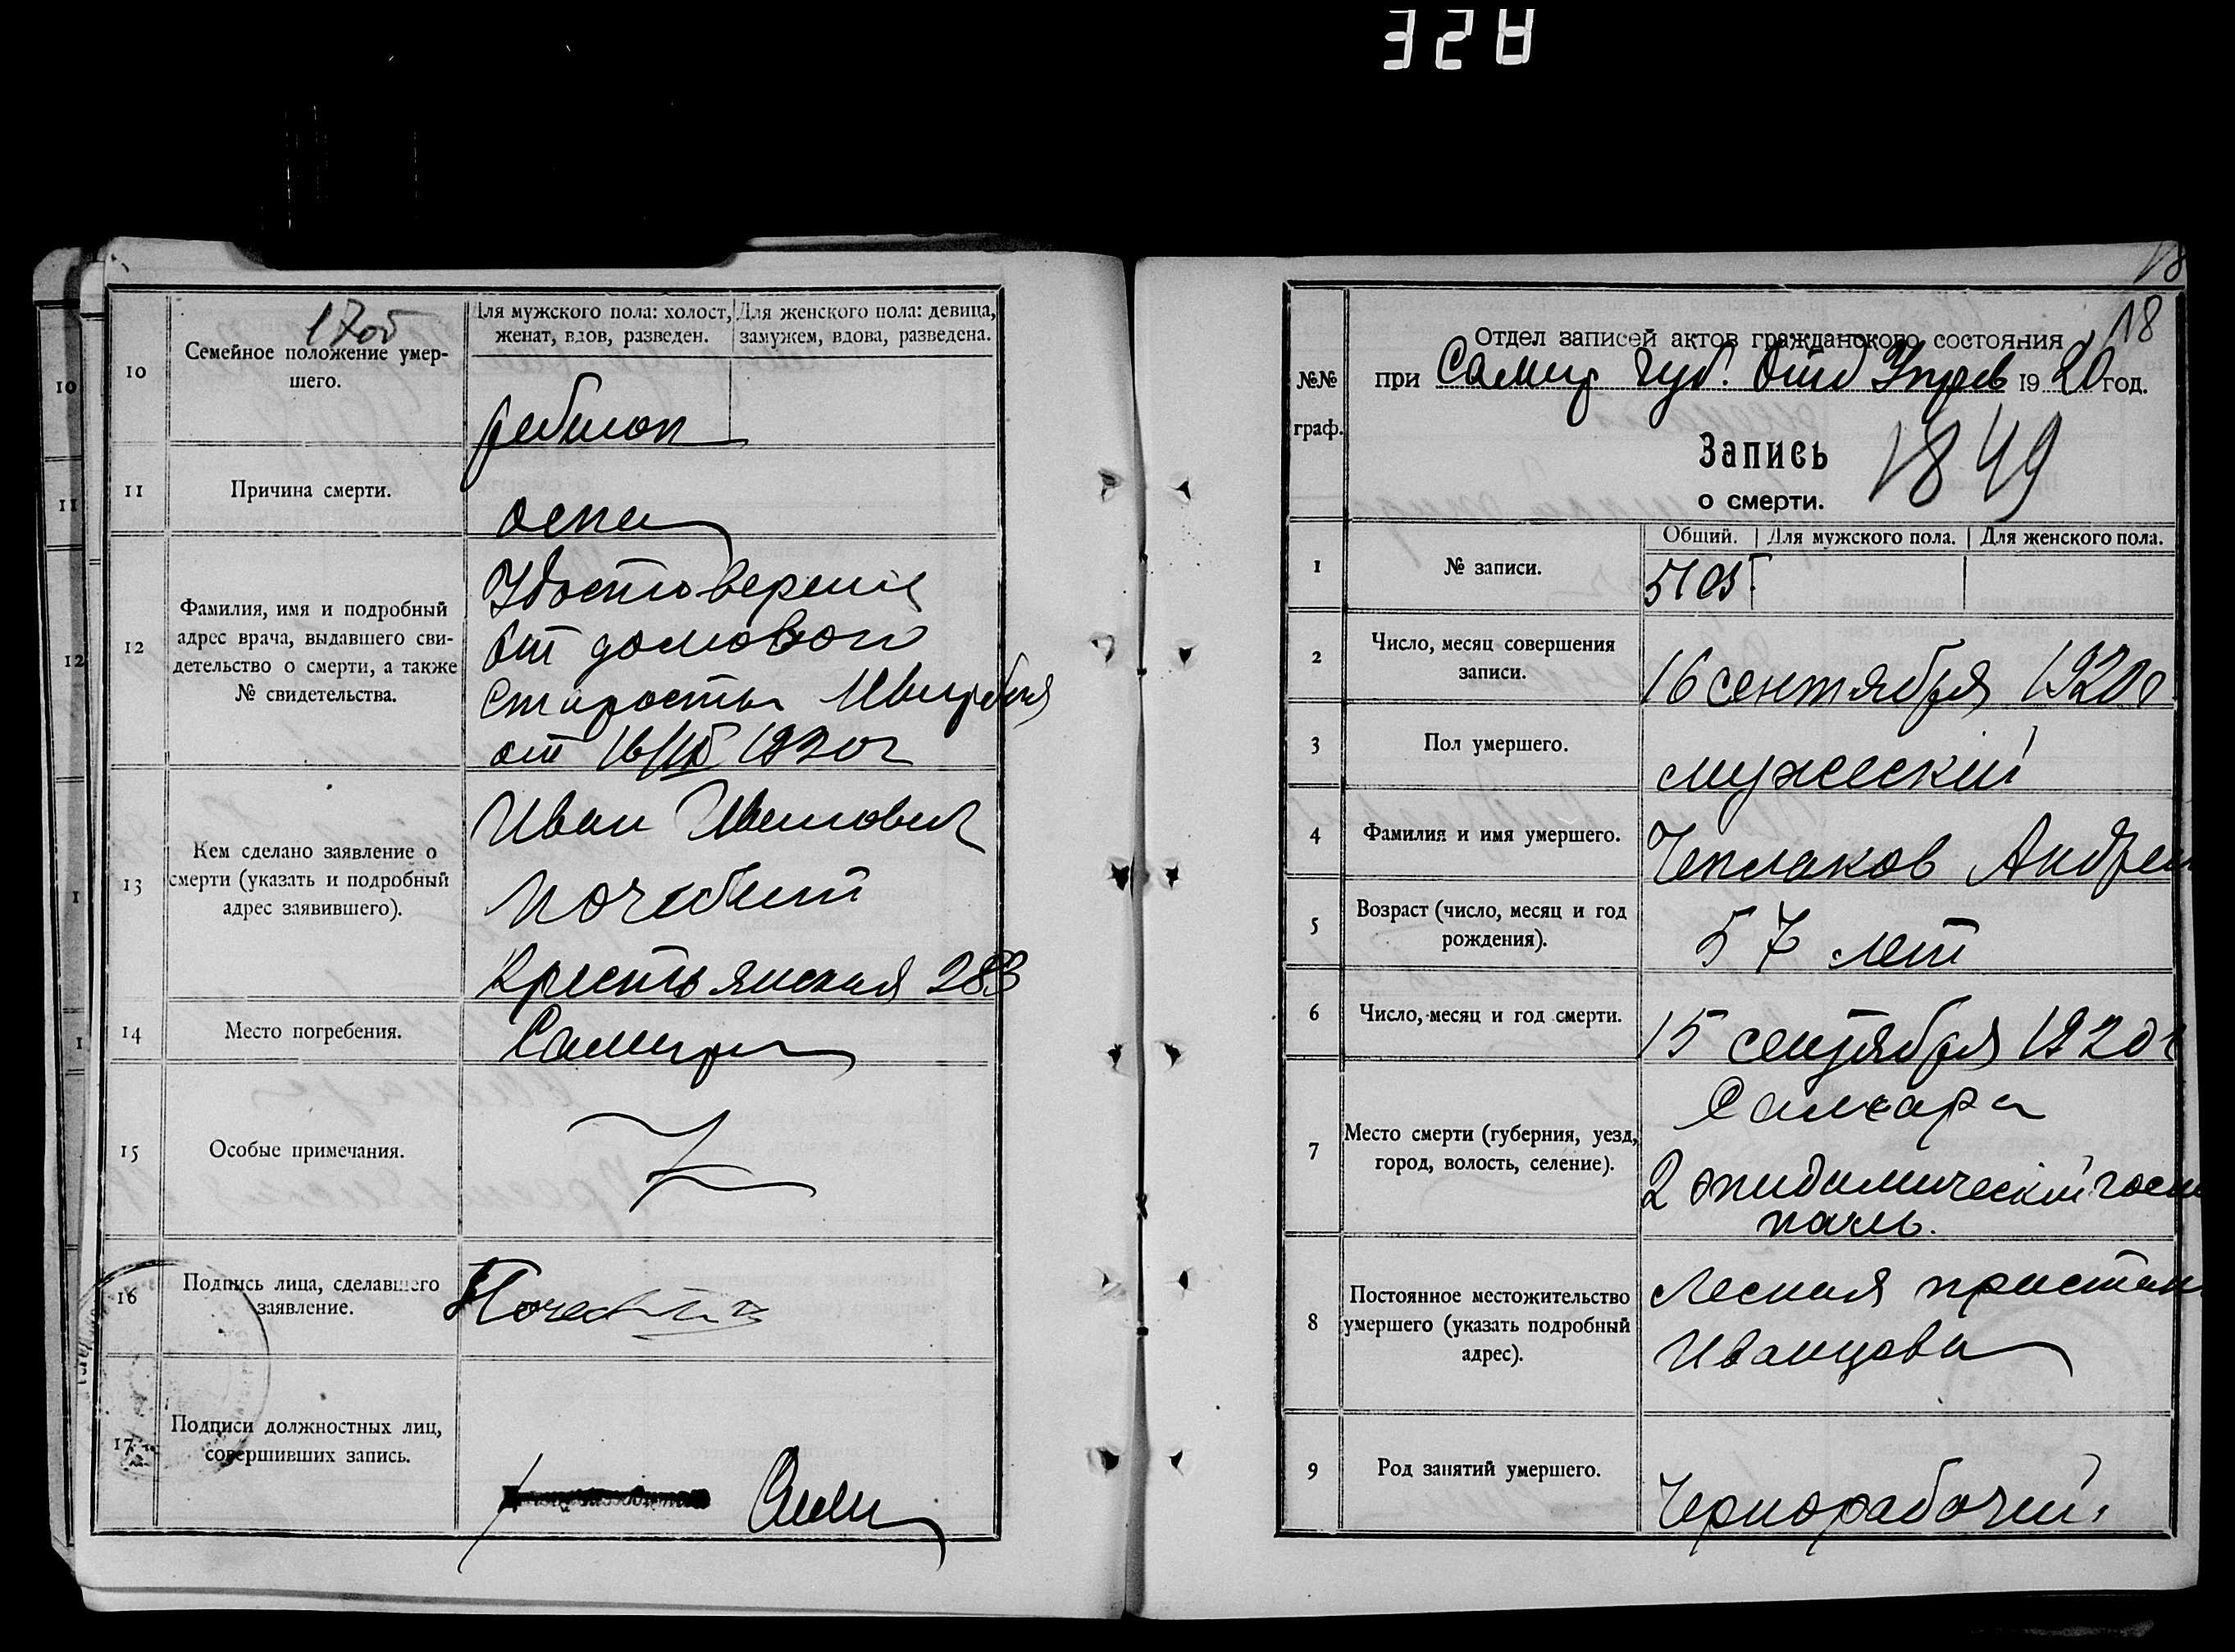 328
1705
10
Семейное положение умер-
шего.
Для мужского пола: холост,
женат, вдов, разведен.
Для женского пола: девица,
замужем, вдова, разведена.
ребенок
11
Причина смерти.
оспа
12
Фамилия, имя и подробный
адрес врача, выдавшего сви-
детельство о смерти, а также
№ свидетельства.
Удостоверение
от домового
старосты
от 16/IX 1920 г
13
Кем сделано заявление о
смерти (указать и подробный
адрес заявившего).
Иван Иванович
Почебыт
Крестьянская 283
14
Место погребения.
Самара
15
Особые примечания.
16
Подпись лица, сделавшего
заявление.
17
Подписи должностных лиц,
совершивших запись.
10
11
12
1
1
18
18
№№
граф.
Отдел записей актов гражданского состояния
при Самар губ. Отд Управ 1920 год.
Запись
о смерти.
1849
Общий.
Для мужского пола.
Для женского пола.
1
№ записи.
5105
2
Число, месяц совершения
записи.
16 сентября 1920 г
3
Пол умершего.
мужеский
4
Фамилия и имя умершего.
Чеплаков Андрей
5
Возраст (число, месяц и год
рождения).
57 лет
6
Число, месяц и год смерти.
15 сентября 1920 г
7
Место смерти (губерния, уезд,
город, волость, селение).
Самара
2 эпидемический госпи
таль.
8
Постоянное местожительство
умершего (указать подробный
адрес).
Лесная пристань
Иванцова
9
Род занятий умершего.
Чернорабочий